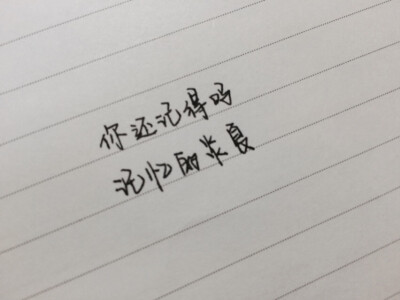 你还记得吗
记忆的炎夏